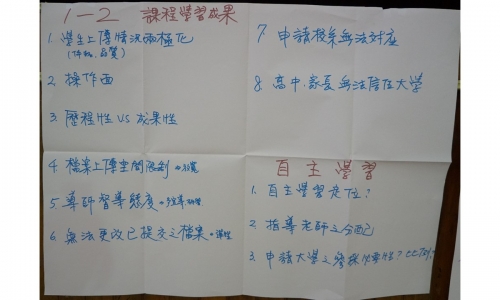 1-2 課程學習成果
1. 學生上傳情況兩極化
(件數、品質)
2. 操作面
3. 歷程性 VS 成果性
4. 檔案上傳空間限制
5. 導師督導態度
6. 無法更改已提交之檔案
7. 申請校系無法對應
8. 高中、家長無法信任大學
自主學習
1. 自主學習定位?
2. 指導老師之分配
3. 申請大學之參採